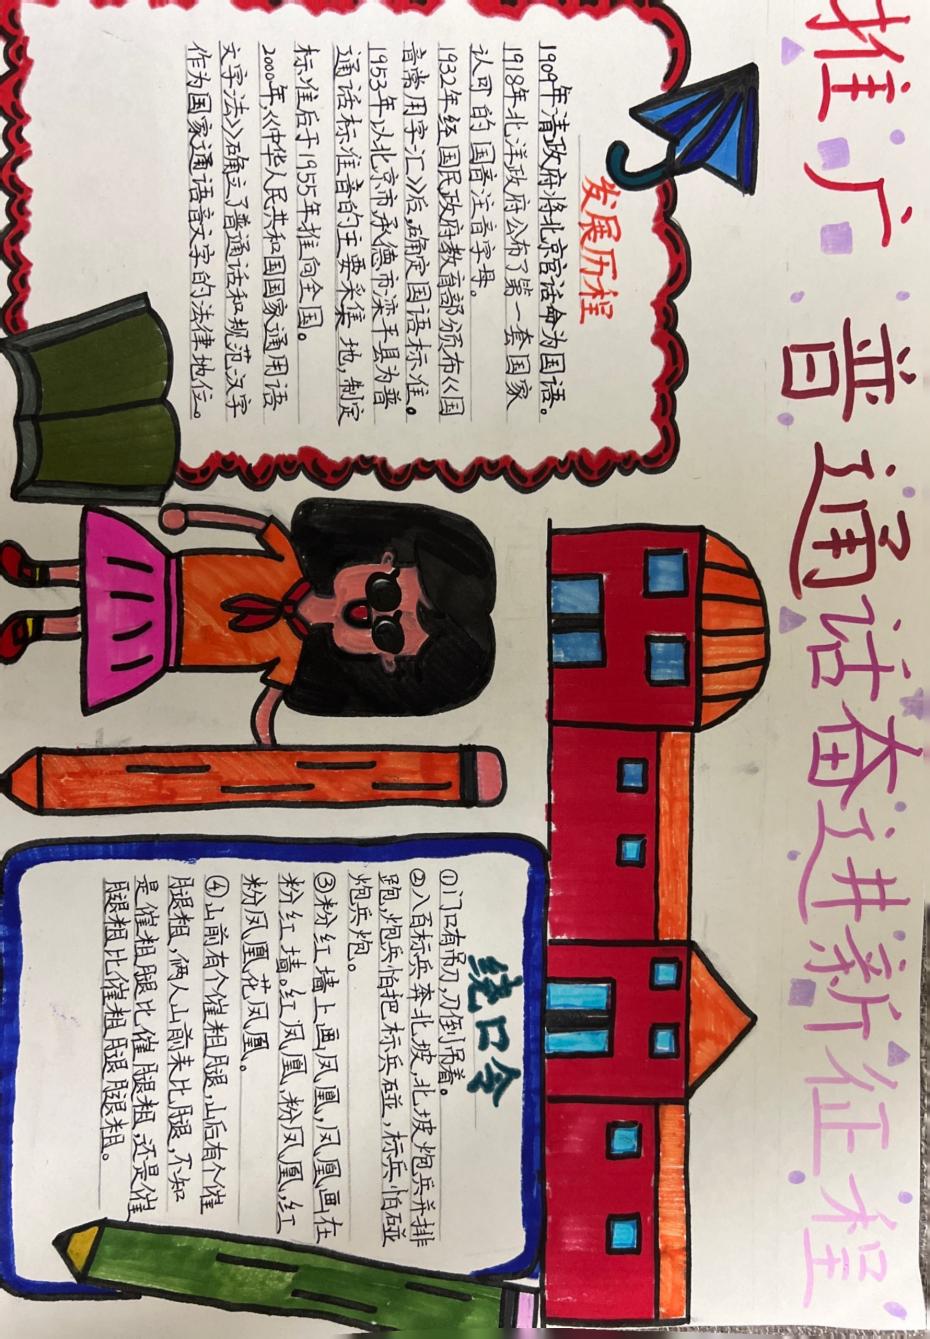 推广普通话奋进新征程
发展历程
1909年清政府将北京官话命为国语。
1918年北洋政府公布了第一套国家
认可的国音注音字母。
1932年经国民政府教育部颁布《国
音常用字汇》后,确定国语标准。
1953年以北京市,承德市滦平县为普
通话标准音的主要采集地,制定
标准后于1955年推向全国。
2000年,《中华人民共和国国家通用语
文字法》确立了普通话和规范汉字
作为国家通语言文字的法律地位。
绕口令
①门口有吊刀,刀倒吊着。
②八百标兵奔北坡,北坡炮兵并排
跑,炮兵怕把标兵碰,标兵怕碰
炮兵炮。
③粉红墙上画凤凰,凤凰画在
粉红墙。红凤凰,粉凤凰,红
粉凤凰,花凤凰。
④山前有个催粗腿,山后有个催
腿粗,俩人山前来比腿,不知
是催粗腿比催腿粗,还是催
腿粗比催粗腿腿粗。